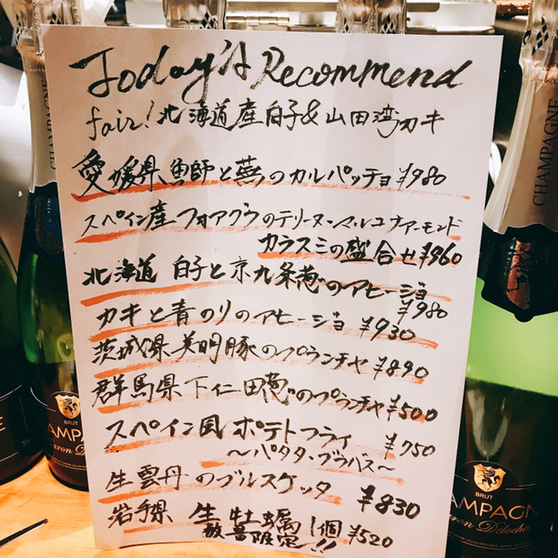 Today's Recommend
fair! 北海道産白子&山田湾カキ
愛媛県魚師と蕪のカルパッチョ ¥980
スペイン産フォアグラのテリーヌ マルコナアーモンド
カラスミの盛合せ ¥960
北海道 白子と京九条葱のアヒージョ
¥980
カキと青のりのアヒージョ ¥930
茨城県美明豚のプランチャ ¥890
群馬県下仁田葱のプランチャ ¥500
スペイン風 ポテトフライ ¥750
〜パタタ・ブラバス〜
生雲丹のブルスケッタ ¥830
岩手県 生牡蠣 1個 ¥520
数量限定!!
CHAMPAGNE
CHAMPAGNE
BRUT
BRUT